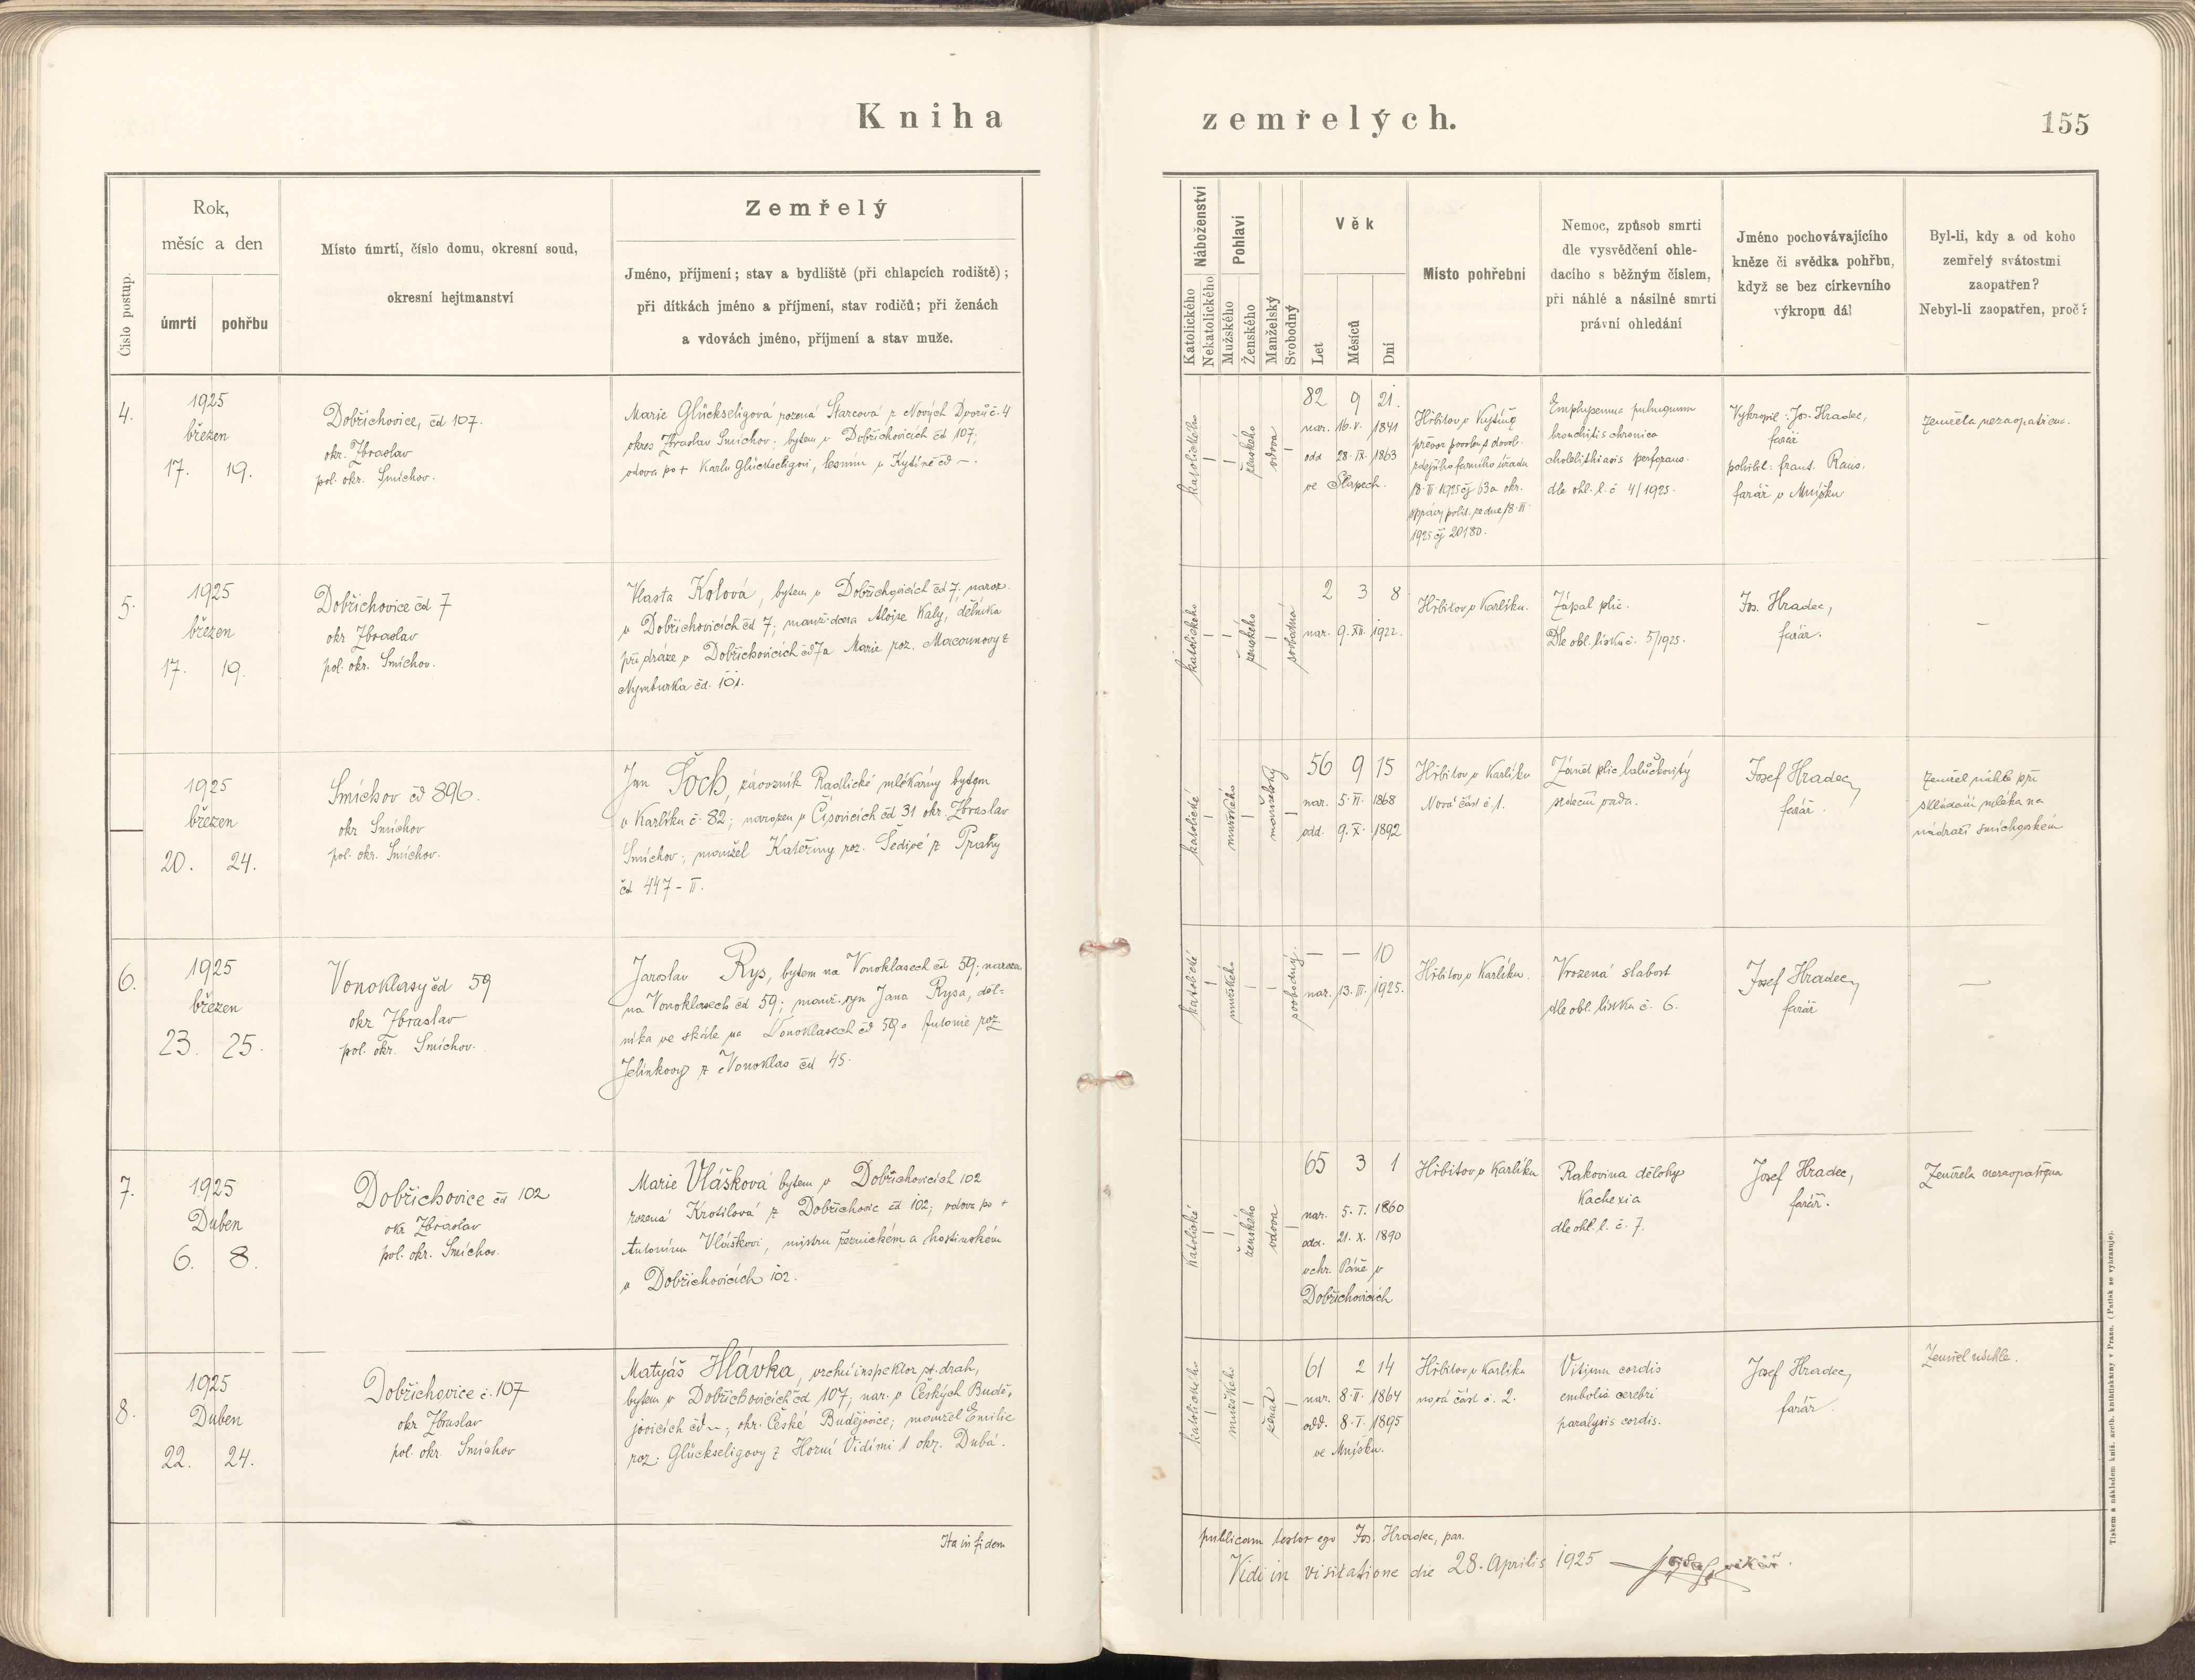 Kniha
zemřelých.
155
Číslo postup.
Rok,
měsíc a den
úmrtí
pohřbu
Místo úmrtí, číslo domu, okresní soud,
okresní hejtmanství
Zemřelý
Jméno, příjmení; stav a bydliště (při chlapcích rodiště);
při dítkách jméno a příjmení, stav rodičů; při ženách
a vdovách jméno, příjmení a stav muže.
Náboženství
Katolického
Nekatolického
Pohlaví
Mužského
Ženského
Manželský
Svobodný
Věk
Let
Měsíců
Dní
Místo pohřební
Nemoc, způsob smrti
dle vysvědčení ohle-
dacího s běžným číslem,
při náhlé a násilné smrti
právní ohledání
Jméno pochovávajícího
kněze či svědka pohřbu,
když se bez církevního
výkropu dál
Byl-li, kdy a od koho
zemřelý svátostmi
zaopatřen?
Nebyl-li zaopatřen, proč?
4.
1925
březen
17. 19.
Dobřichovice, čd 107.
okr. Zbraslav
pol. okr. Smíchov.
Marie Glückseligová rozená Starcová z Nových Dvorů č. 4
okres Zbraslav Smíchov; bytem v Dobřichovicích čd 107;
vdova po + Karlu Glückseligovi, lesním v Kytíně čd –.
katolického
ženského
vdova
82 9 21.
nar. 16. V. 1841
odd 28. IX. 1863
ve Slapech.
Hřbitov v Kytíně
převoz povolen z dovol.
zdejšího farního úřadu
18. III 1925 čj 63 a okr.
správy polit. ze dne 18. III.
1925 čj 20180.
Emphysema pulmonum
bronchitis chronica
cholelithiasis perforans.
dle ohl. l. č 4/1925.
Vykropil: Jos. Hradec,
farář
pohřbil: frant. Raus,
farář v Mníšku
Zemřela nezaopatřena.
5.
1925
březen
17. 19.
Dobřichovice čd 7
okr Zbraslav
pol. okr. Smíchov.
Vlasta Kalová, bytem v Dobřichovicích čd 7; naroz.
v Dobřichovicích čd 7; manž. dcera Aloise Kaly, dělníka
při dráze v Dobřichovicích čd 7 a Marie roz. Macounovy z
Nymburka čd. 101.
katolického
ženského
svobodná
2 3 8
nar. 9. XII. 1922.
Hřbitov v Karlíku.
Zápal plic.
Dle obl. lístku č. 5/1925.
Jos. Hradec,
farář.
–
1925
březen
20. 24.
Smíchov čd 896.
okr Smíchov
pol. okr. Smíchov.
Jan Šoch, závozník Radlické mlékárny bytem
v Karlíku č. 82; narozen v Čísovicích čd 31 okr. Zbraslav
Smíchov; manžel Kateřiny roz. Šedivé z Prahy
čd 447 – II.
katolické
mužského
manželský
56 9 15
nar. 5. VI. 1868
odd. 9. X. 1892
Hřbitov v Karlíku
Nová část č. 1.
Zánět plic lalůčkovitý
srdeční vada.
Josef Hradec,
farář.
Zemřel náhle při
skládání mléka na
nádraží smíchovském
6.
1925
březen
23. 25.
Vonoklasy čd 59
okr Zbraslav
pol. okr. Smíchov.
Jaroslav Rys, bytem na Vonoklasech čd 59; narozen
na Vonoklasech čd 59; manž. syn Jana Rysa, děl-
níka ve skále na Vonoklasech čd 59 a Antonie roz
Jelínkovy z Vonoklas čd 45.
katolické
mužského
svobodný.
– – 10
nar. 13. III. 1925.
Hřbitov v Karlíku.
Vrozená slabost
dle obl. lístku č. 6.
Josef Hradec,
farář
–
7.
1925
Duben
6. 8.
Dobřichovice čd 102
okr Zbraslav
pol. okr. Smíchov.
Marie Vlášková bytem v Dobřichovicích 102
rozená Krotilová z Dobřichovic čd 102; vdova po +
Antonínu Vláškovi, mistru řeznickém a hostinském
v Dobřichovicích 102.
Katolické
ženského
vdova
65 3 1
nar. 5. I. 1860
odd. 21. X. 1890
v chr. Páně v
Dobřichovicích
Hřbitov v Karlíku
Rakovina dělohy
Kachexia
dle ohl. l. č. 7.
Josef Hradec,
farář.
Zemřela nezaopatřena
8.
1925
Duben
22. 24.
Dobřichovice č. 107
okr Zbraslav
pol. okr. Smíchov
Matyáš Hlávka, vrchní inspektor st. drah,
bytem v Dobřichovicích čd 107; nar. v Českých Budě-
jovicích čd –; okr. České Budějovice; manžel Emilie
roz. Glückseligovy z Horní Vidimi 1 okr. Dubá.
katolického
mužského
ženat
61 2 14
nar. 8. II. 1864
odd. 8. I. 1895
ve Mníšku.
Hřbitov v Karlíku
nová část č. 2.
Vitium cordis
embolia cerebri
paralysis cordis.
Josef Hradec,
farář.
Zemřel náhle.
Ita in fidem
publicam testor ego Jos. Hradec, par.
Vidi in visitatione die 28. Aprilis 1925
vikář.
Tiskem a nákladem kníž. arcib. knihtiskárny v Praze. (Patisk se vyhrazuje).